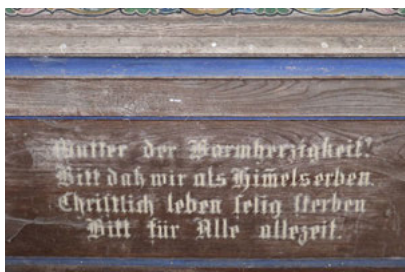 Mutter der Barmherzigkeit!
Bitt daß wir als Him̄elserben.
Christlich leben selig sterben
Bitt für Alle allezeit.